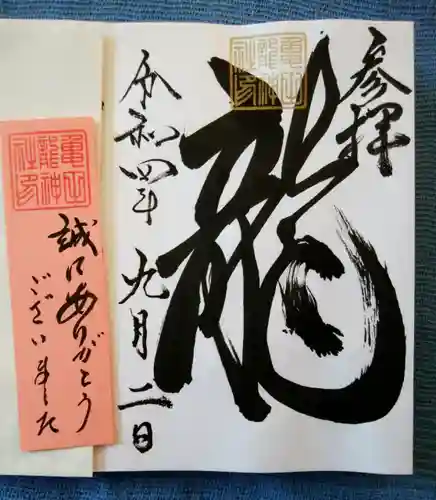 参拝
龍
亀山
龍神
社印
令和四年
九月二日
亀山
龍神
社印
誠にありがとう
ございました